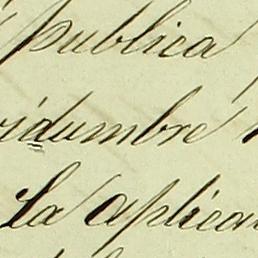 publica
vidumbre
La aplican